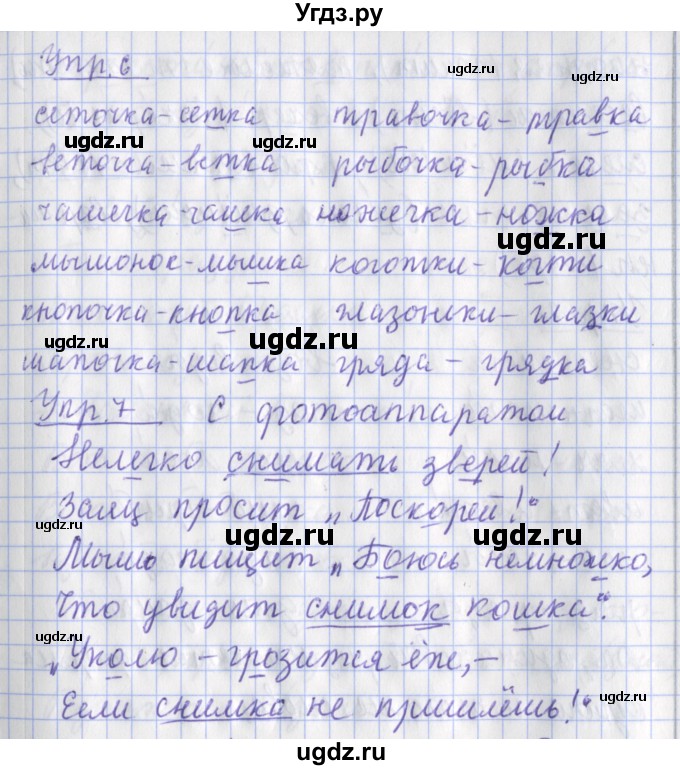 Угдз.ру
Упр. 6
сеточка-сетка травочка-травка
веточка-ветка рыбочка-рыбка
чашечка-чашка ножечка-ножка
мышонок-мышка коготки-когти
кнопочка-кнопка глазоньки-глазки
шапочка-шапка гряда - грядка
Упр. 7 С фотоаппаратом
Нелегко снимать зверей!
Заяц просит „Поскорей!“
Мышь пищит „Боюсь немножко,
Что увидит снимок кошка“.
„Уколю - грозится ёж, -
Если снимка не пришлёшь!“
ugdz.ru
ugdz.ru
ugdz.ru
ugdz.ru
ugdz.ru
ugdz.ru
ugdz.ru
ugdz.ru
ugdz.ru
ugdz.ru
ugdz.ru
ugdz.ru